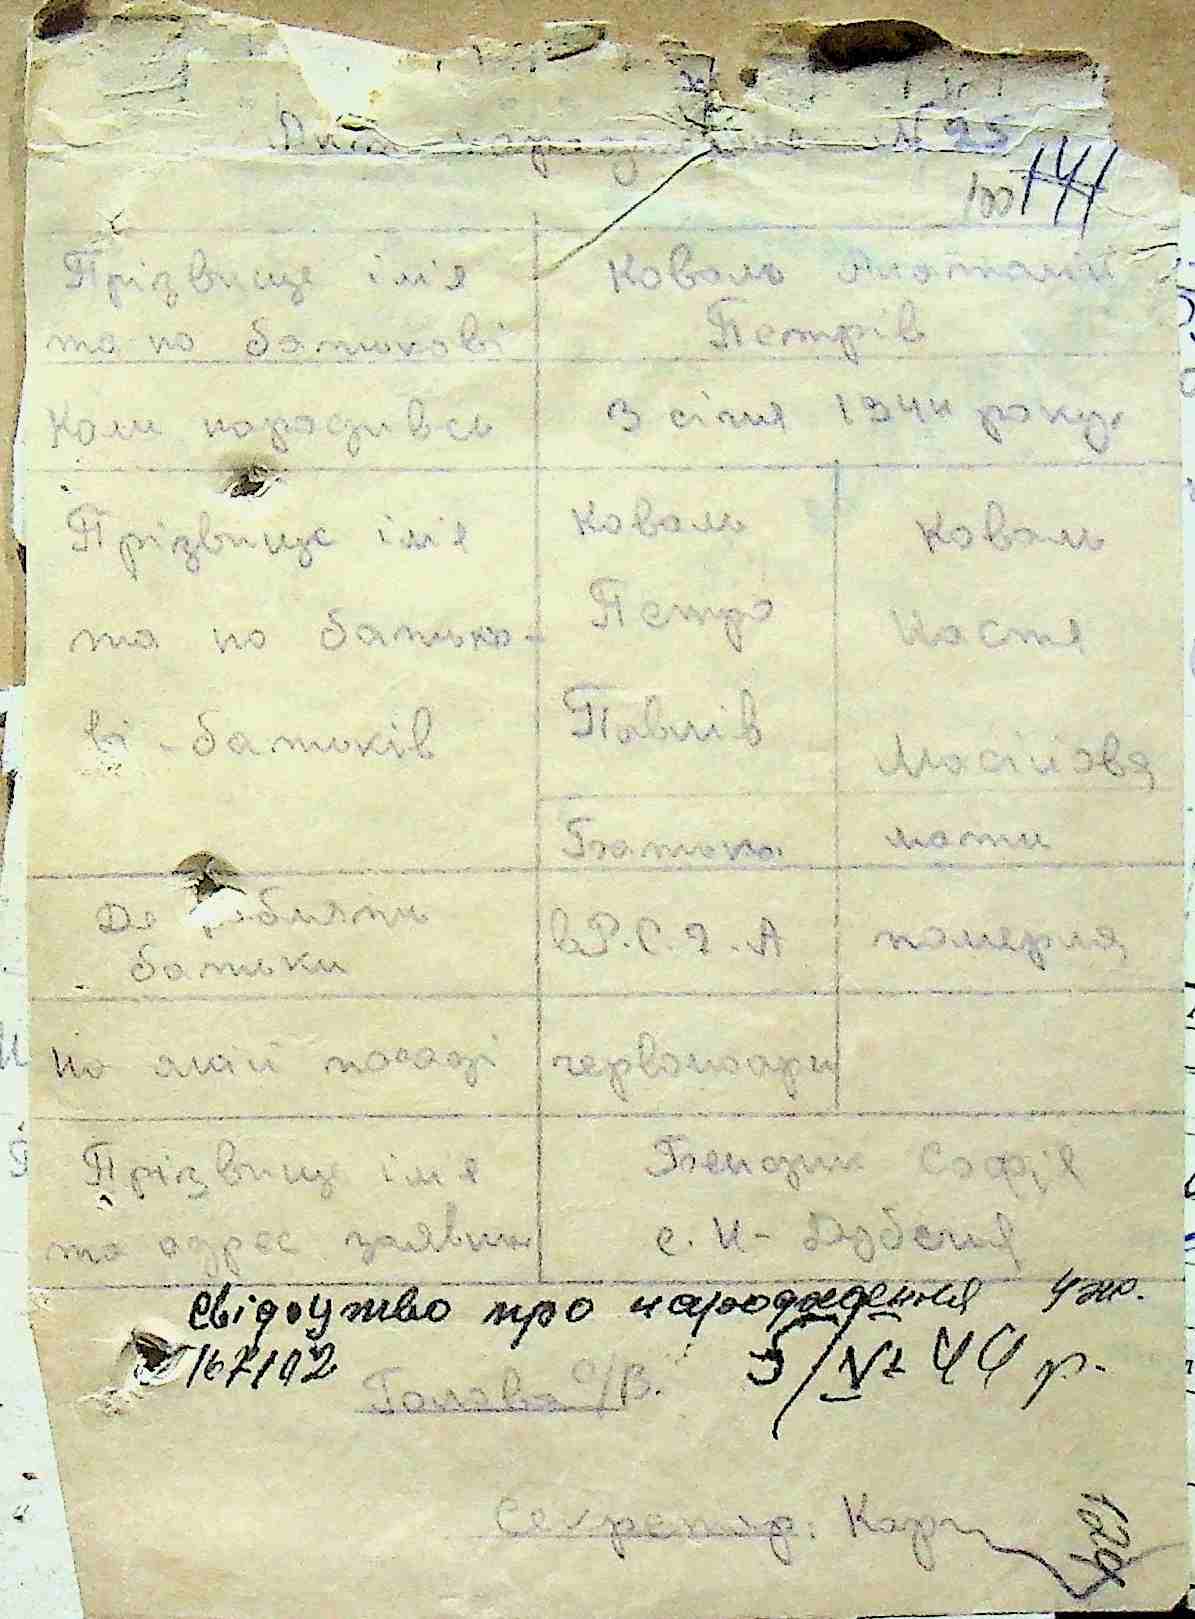 Акт народження № 25
100 141
Прізвище ім'я
та по батькові
Коваль Анатолій
Петрів
Коли народивсь
3 січня 1944 року
Прізвище ім'я
та по батько-
ві батьків
Коваль
Петро
Павлів
Батько
Коваль
Настя
Мосійова
мати
Де робляти
батьки
в Р.С.Ч.А
померла
На якій посаді
червоноарм
Прізвище ім'я
та адрес заявник
Бендик Софія
с. Н-Дубечня
Свідоцтво про народження
167102
5/IV 44 р.
Голова С/В.
Секретар:
129